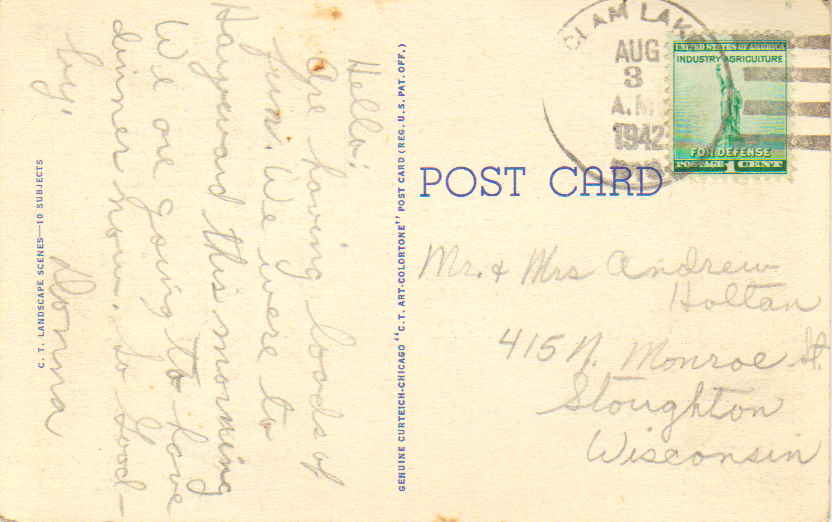 Hello;
Are having loads of
fun. We were to
Hayward this morning
We are going to have
dinner now. So Good-
by.
Donna
C. T. LANDSCAPE SCENES—10 SUBJECTS
GENUINE CURTEICH-CHICAGO "C.T. ART-COLORTONE" POST CARD (REG. U.S. PAT. OFF.)
POST CARD
CLAM LAKE
AUG
3
A.M.
1942
UNITED STATES OF AMERICA
INDUSTRY AGRICULTURE
FOR DEFENSE
POSTAGE 1 CENT
Mr. & Mrs Andrew
Holtan
415 N. Monroe St.
Stoughton
Wisconsin